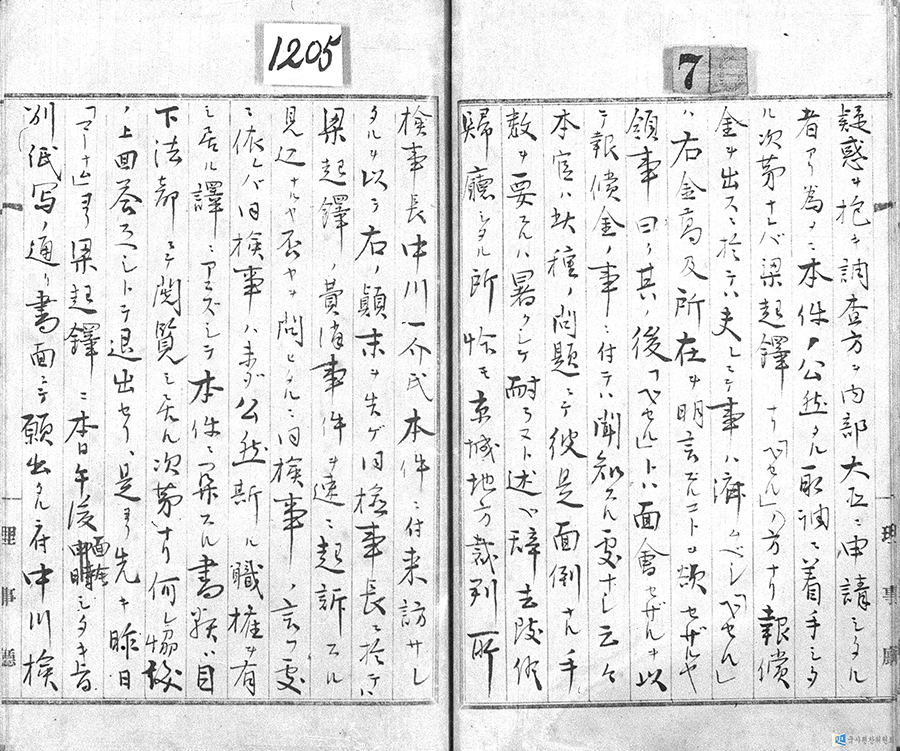 7
疑惑ヲ抱キ調査方ヲ内部大臣ニ申請シタル
者アリ為メニ本件ノ公然タル取調ニ着手シタ
ル次第ナレバ梁起鐸ナリ「ベセル」ノ方ナリ報償
金ヲ出スニ於テハ夫レニテ事ハ済ムベシ「ベセル」
ハ右金高及所在ヲ明言スルコトヲ欲セザルヤ
領事曰ク其ノ後「ベセル」トハ面會セザルヲ以
テ報償金ノ事ニ付テハ聞知スル處ナシ云々
本官ハ此種ノ問題ニテ彼是面倒サル手
数ヲ要スルハ暑クシテ耐ラスト述ベ辞去
歸廳シタル所恰モ京城地方裁判所
1205
検事長中川一介氏本件ニ付来訪サレ
タルヲ以テ右ノ顛末ヲ告ゲ同検事長ニ於テハ
梁起鐸ノ費消事件ヲ速ニ起訴スル
見込ナルヤ否ヤヲ問ヒタルニ同検事ノ言フ處
ニ依レバ同検事ハ未ダ公然斯ル職権ヲ有
シ居ル譯ニアラズシテ本件ニ関スル書類ハ目
下法部ニテ閲覧シ居ル次第ナリ何レ協議
ノ上回答スベシトテ退出セリ、是ヨリ先キ昨日
「マーナム」ヨリ梁起鐸ニ本日午後面會シタキ旨
別紙写ノ通リ書面ニテ願出タル付中川検
理事廳
理事廳
국사편찬위원회